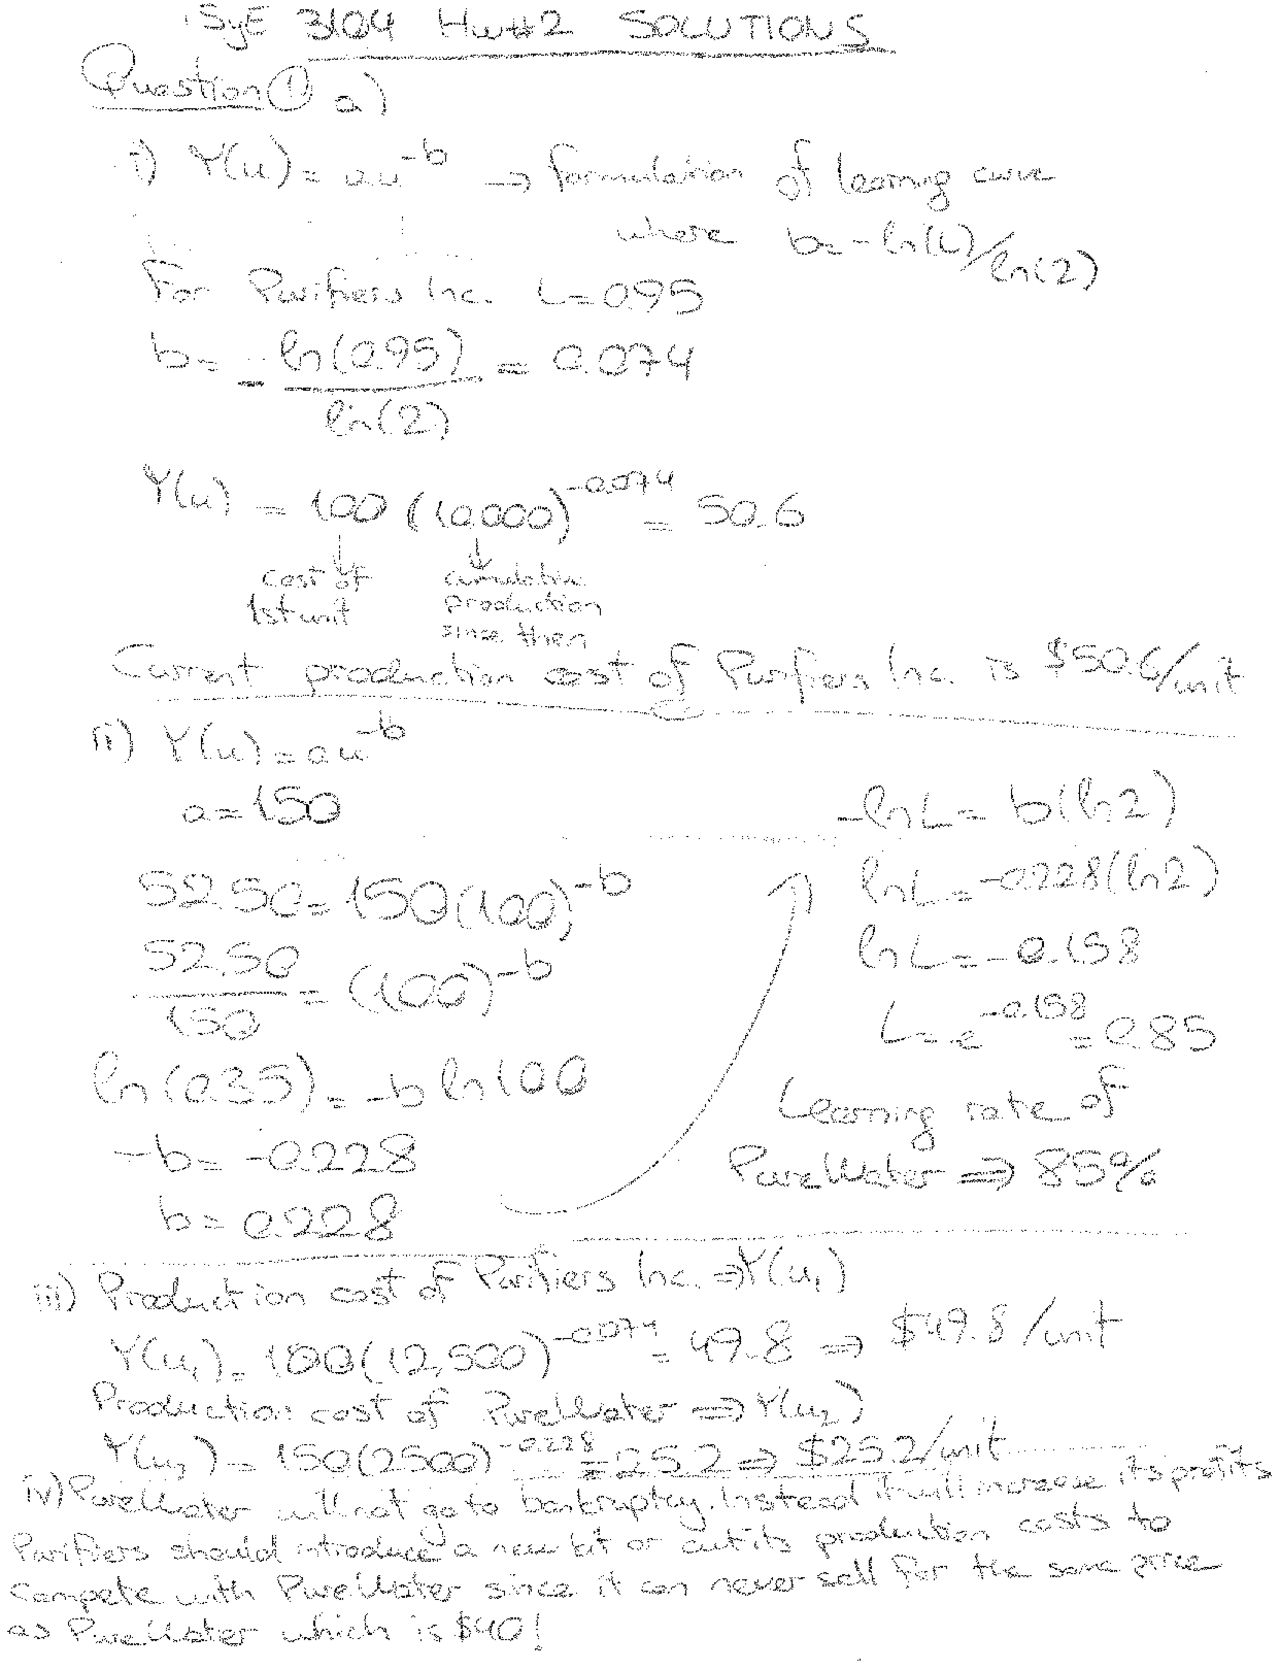 ISyE 3104 Hw#2 SOLUTIONS
Question ① a)
i) Y(u) = au^-b → formulation of learning curve
where b = -ln(L)/ln(2)
For Purifiers Inc. L=0.95
b = - ln(0.95) / ln(2) = 0.074
Y(u) = 100 (10,000)^-0.074 = 50.6
cost of 1st unit
cumulative production since then
Current production cost of Purifiers Inc. is $50.6/unit
ii) Y(u) = au^-b
a = 150
52.50 = 150(100)^-b
52.50 / 150 = (100)^-b
ln(0.35) = -b ln100
-b = -0.228
b = 0.228
-lnL = b(ln2)
lnL = -0.228(ln2)
lnL = -0.158
L = e^-0.158 = 0.85
Learning rate of
PureWater ⇒ 85%
iii) Production cost of Purifiers Inc. ⇒ Y(u₁)
Y(u₁) = 100(12,500)^-0.074 = 49.8 ⇒ $49.8/unit
Production cost of PureWater ⇒ Y(u₂)
Y(u₂) = 150(2500)^-0.228 = 25.2 ⇒ $25.2/unit
iv) PureWater will not go to bankruptcy. Instead it will increase its profits
Purifiers should introduce a new kit or cut its production costs to
compete with PureWater since it can never sell for the same price
as PureWater which is $40!